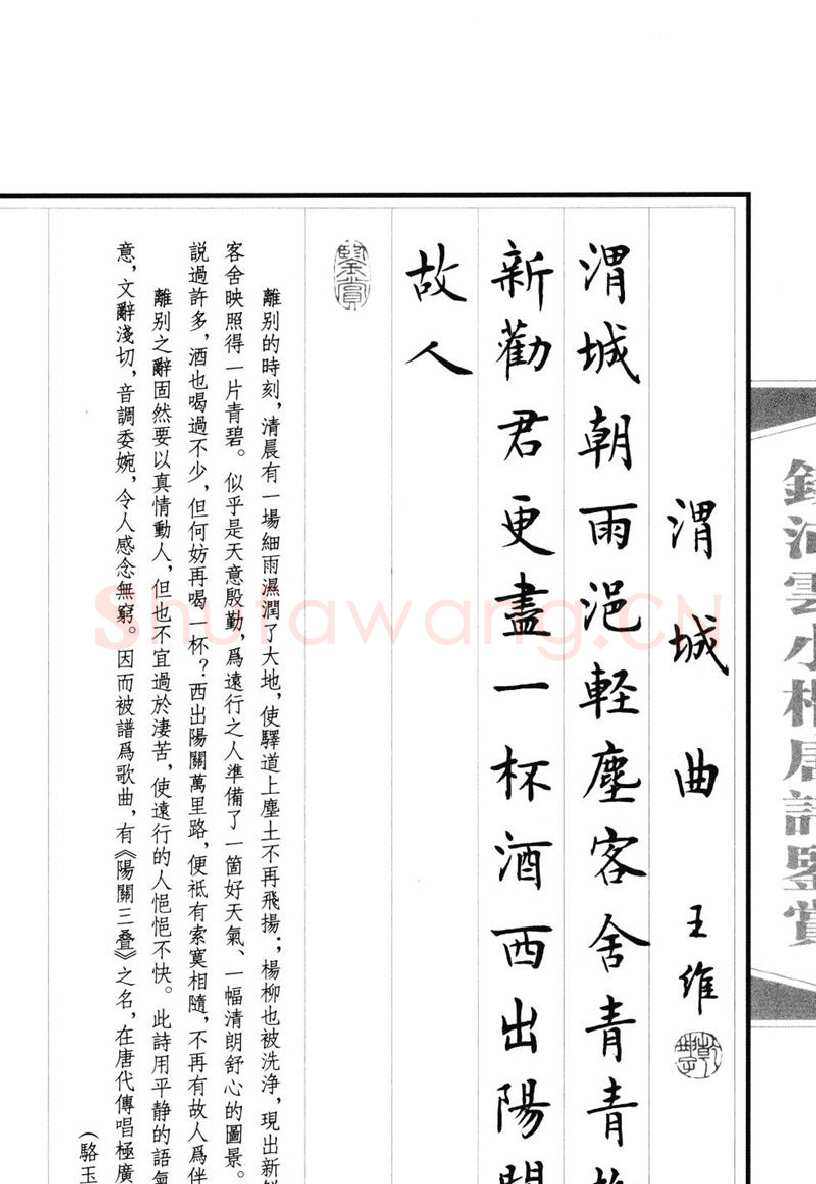 渭城曲 王維
渭城朝雨浥輕塵客舍青青
新勸君更盡一杯酒西出陽關
故人
鑒賞
離别的時刻，清晨有一場細雨濕潤了大地，使驛道上塵土不再飛揚；楊柳也被洗净，現出新鮮
客舍映照得一片青碧。似乎是天意殷勤，爲遠行之人準備了一箇好天氣、一幅清朗舒心的圖景。
説過許多，酒也喝過不少，但何妨再喝一杯？西出陽關萬里路，便祇有索寞相隨，不再有故人爲伴
離别之辭固然要以真情動人，但也不宜過於淒苦，使遠行的人悒悒不快。此詩用平静的語氣
意，文辭淺切，音調委婉，令人感念無窮。因而被譜爲歌曲，有《陽關三叠》之名，在唐代傳唱極廣
（駱玉
錢沛雲小楷唐詩鑒賞
Shufawang.CN